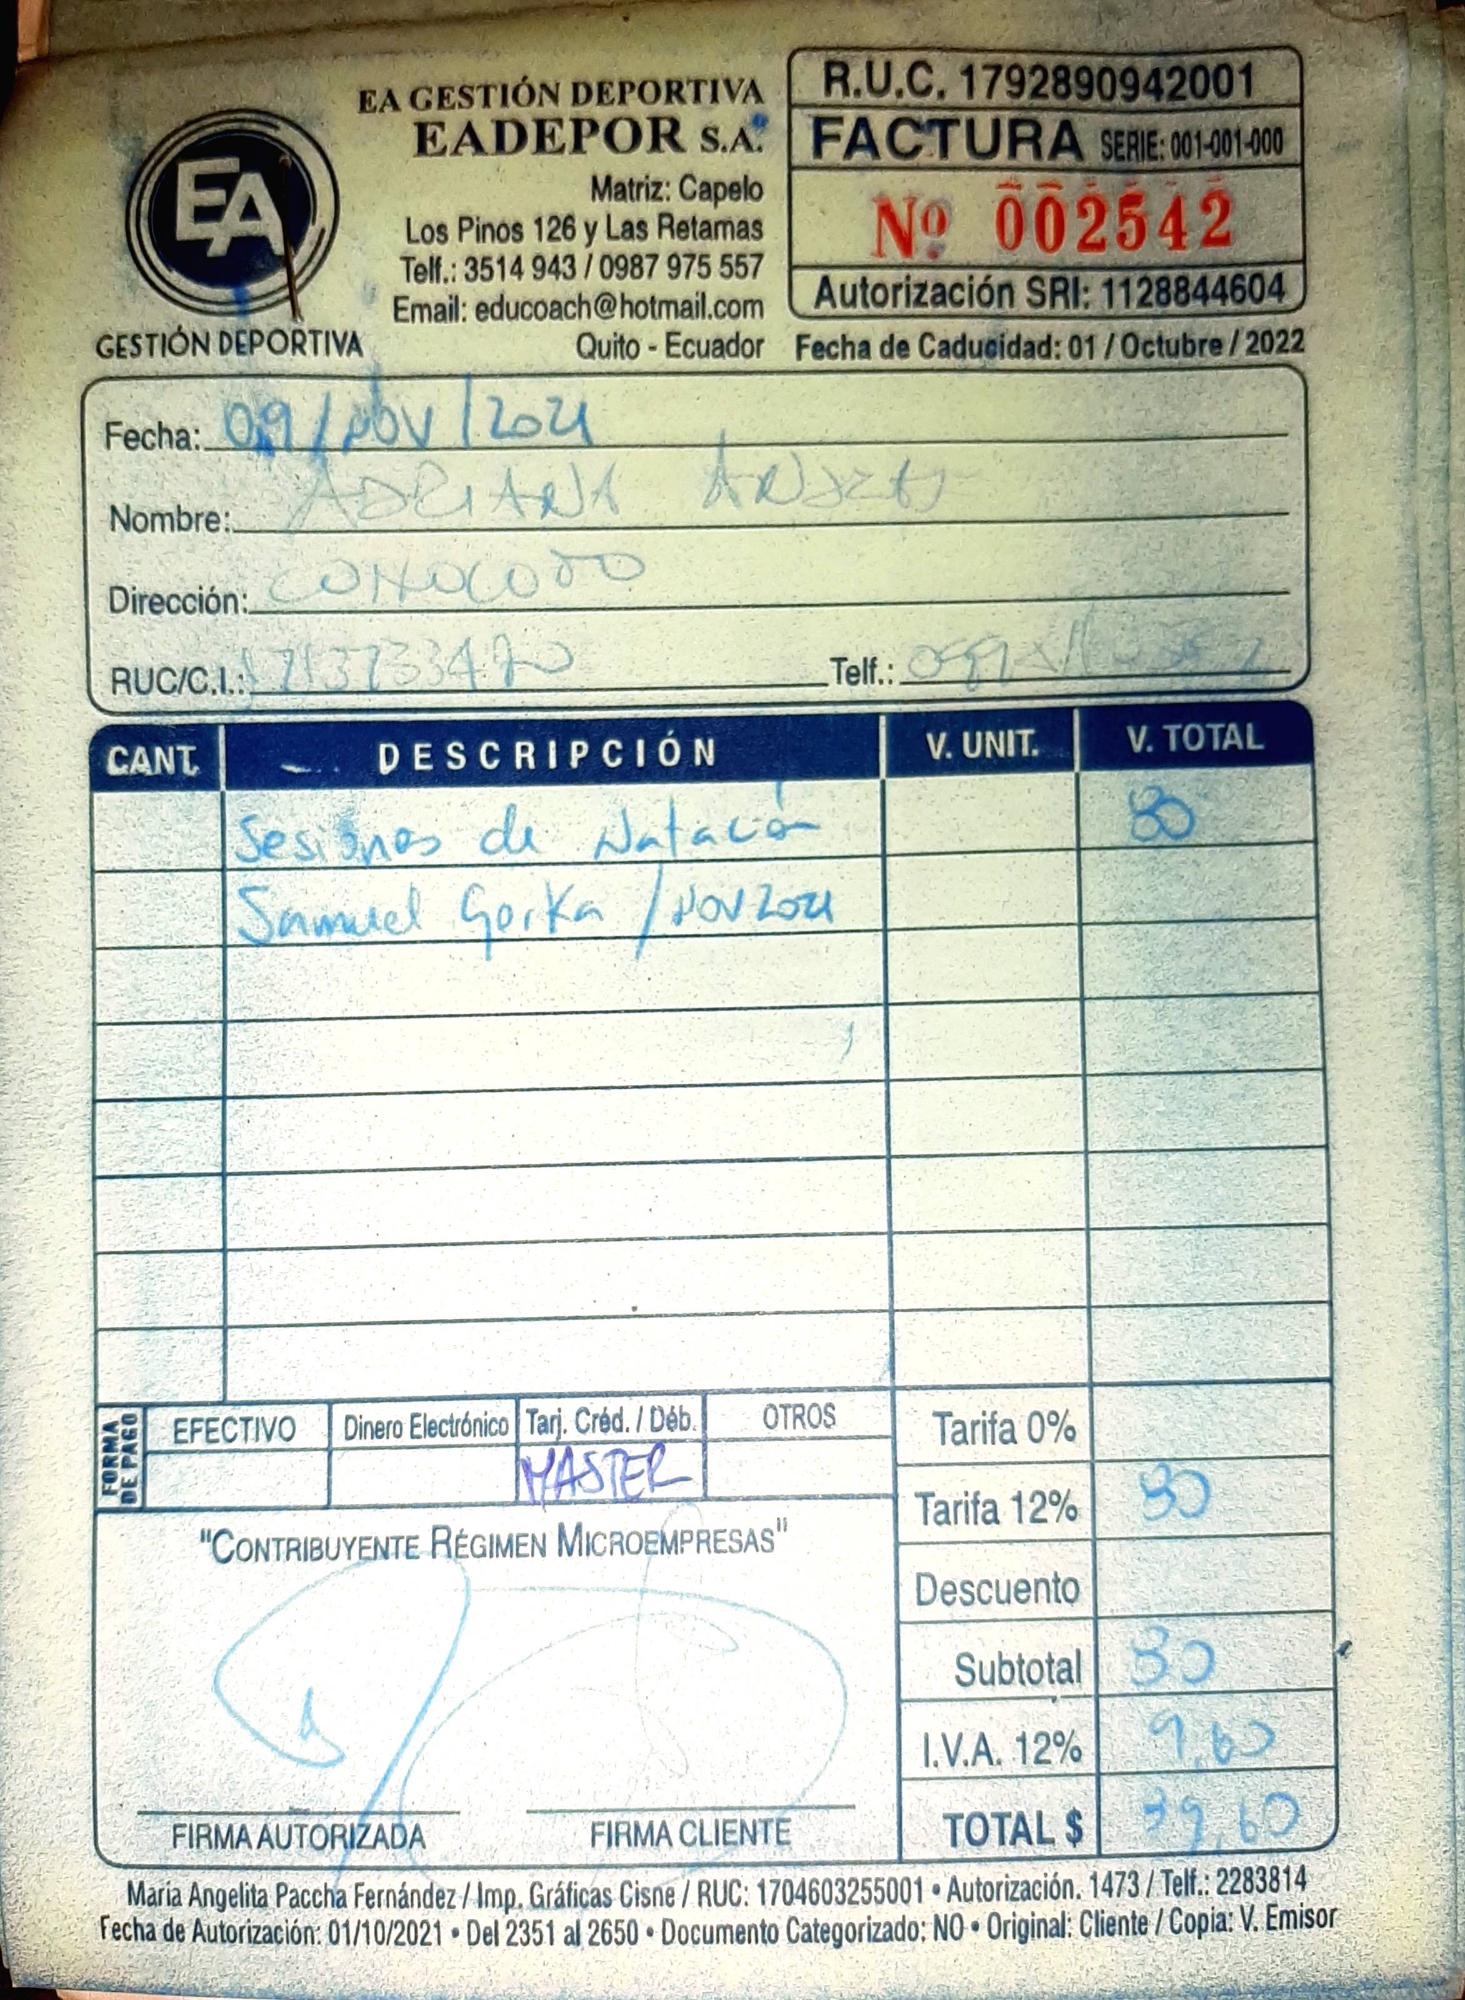 EA GESTIÓN DEPORTIVA
EADEPOR S.A.
Matriz: Capelo
Los Pinos 126 y Las Retamas
Telf.: 3514 943 / 0987 975 557
Email: educoach@hotmail.com
Quito - Ecuador
EA
GESTIÓN DEPORTIVA
R.U.C. 1792890942001
FACTURA SERIE: 001-001-000
Nº 002542
Autorización SRI: 1128844604
Fecha de Caducidad: 01 / Octubre / 2022
Fecha: 09/NOV/2021
Nombre: ADRIANA
Dirección: CONOCOTO
RUC/C.I.:
Telf.:
CANT. DESCRIPCIÓN V. UNIT. V. TOTAL
Sesiones de Natación 80
Samuel Gorka / NOV 2021
FORMA DE PAGO
EFECTIVO Dinero Electrónico Tarj. Créd. / Déb. OTROS
MASTER
Tarifa 0%
Tarifa 12% 80
Descuento
Subtotal 80
I.V.A. 12% 9,60
TOTAL $ 89,60
"CONTRIBUYENTE RÉGIMEN MICROEMPRESAS"
FIRMA AUTORIZADA FIRMA CLIENTE
María Angelita Paccha Fernández / Imp. Gráficas Cisne / RUC: 1704603255001 • Autorización. 1473 / Telf.: 2283814
Fecha de Autorización: 01/10/2021 • Del 2351 al 2650 • Documento Categorizado: NO • Original: Cliente / Copia: V. Emisor